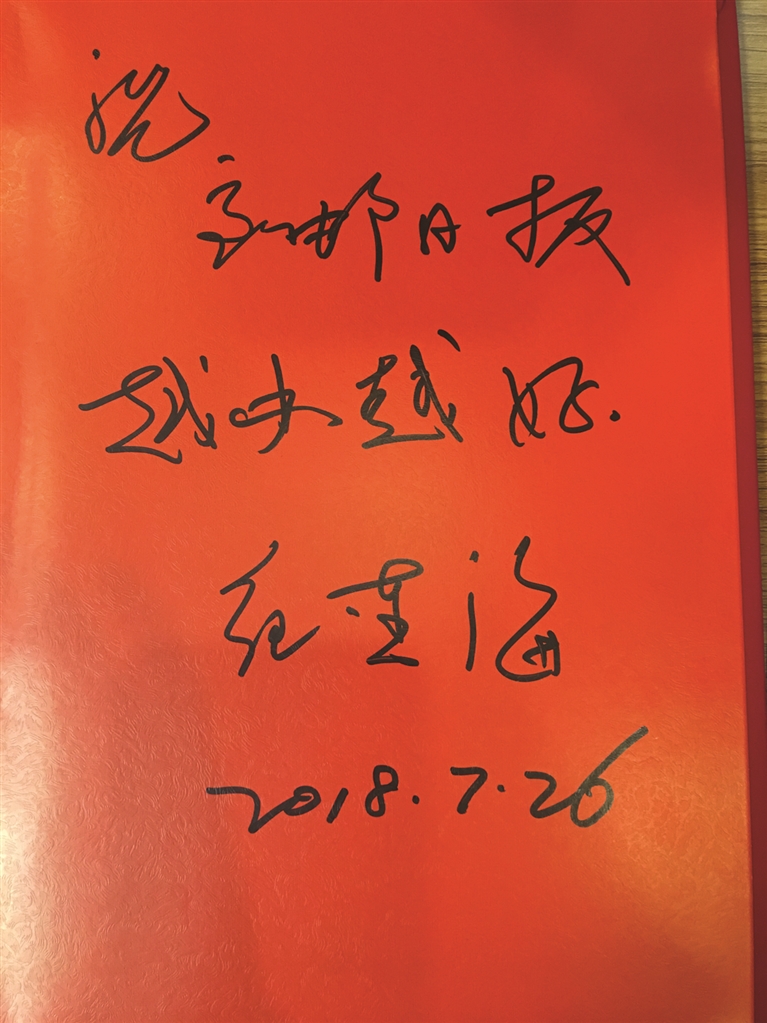 祝
高邮日报
越办越好.
纪连海
2018.7.26